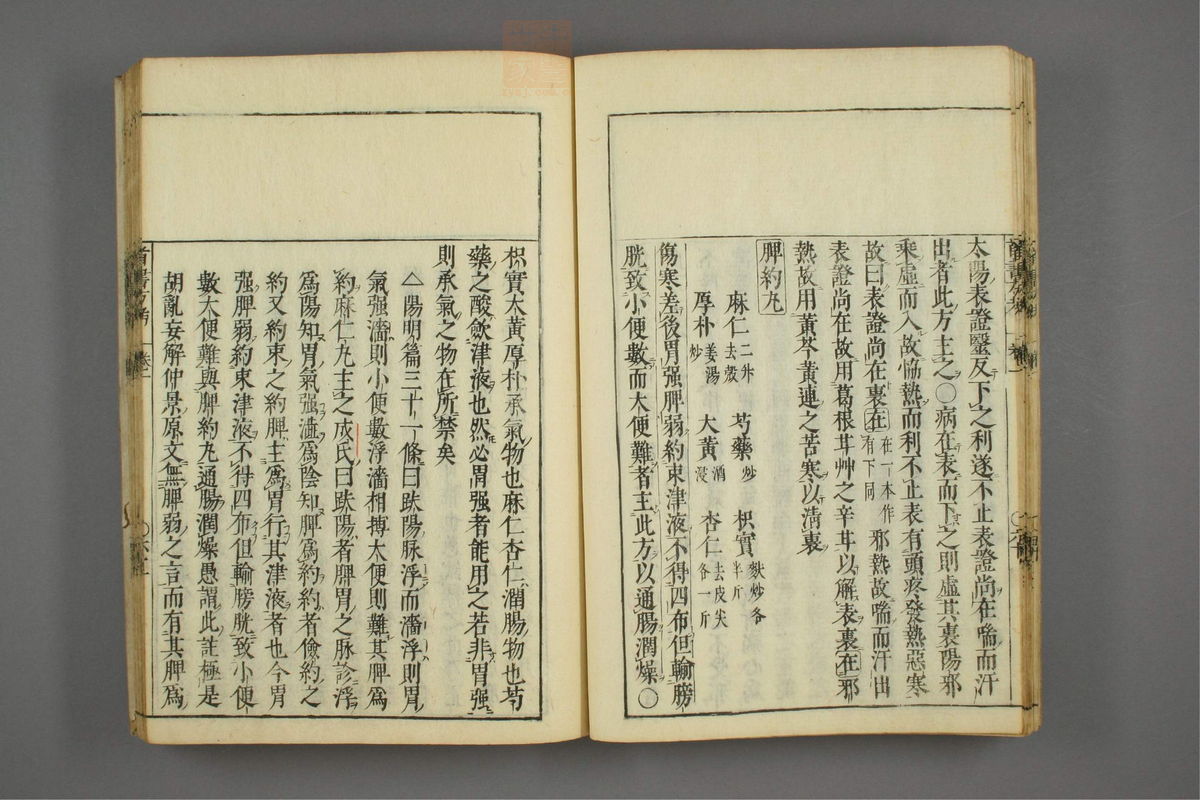 太陽表證醫反下之利遂不止表證尚在喘而汗
出者此方主之〇病在表而下之則虛其裏陽邪
乘虛而入故恊熱而利不止表有頭疼發熱惡寒
故曰表證尚在裏在在一本作有下同邪熱故喘而汗出
表證尚在故用葛根甘艸之辛甘以解表裏在邪
熱故用黃芩黃連之苦寒以清裏
脾約丸
麻仁二升去殼 芍藥炒 枳實麩炒各半斤
厚朴姜湯炒 大黃酒浸 杏仁去皮尖各一斤
傷寒差後胃强脾弱約束津液不得四布但輸膀
胱致小便數而大便難者主此方以通腸潤燥〇
枳實大黃厚朴承氣物也麻仁杏仁潤腸物也芍
藥之酸斂津液也然必胃强者能用之若非胃强
則承氣之物在所禁矣
△陽明篇三十一條曰趺陽脉浮而濇浮則胃
氣强濇則小便數浮濇相搏大便則難其脾爲
約麻仁丸主之成氏曰趺陽者脾胃之脉診浮
爲陽知胃氣强濇爲陰知脾爲約約者儉約之
約又約束之約脾主爲胃行其津液者也今胃
强脾弱約束津液不得四布但輸膀胱致小便
數大便難與脾約丸通腸潤燥愚謂此註極是
胡亂妄解仲景原文無脾弱之言而有其脾爲